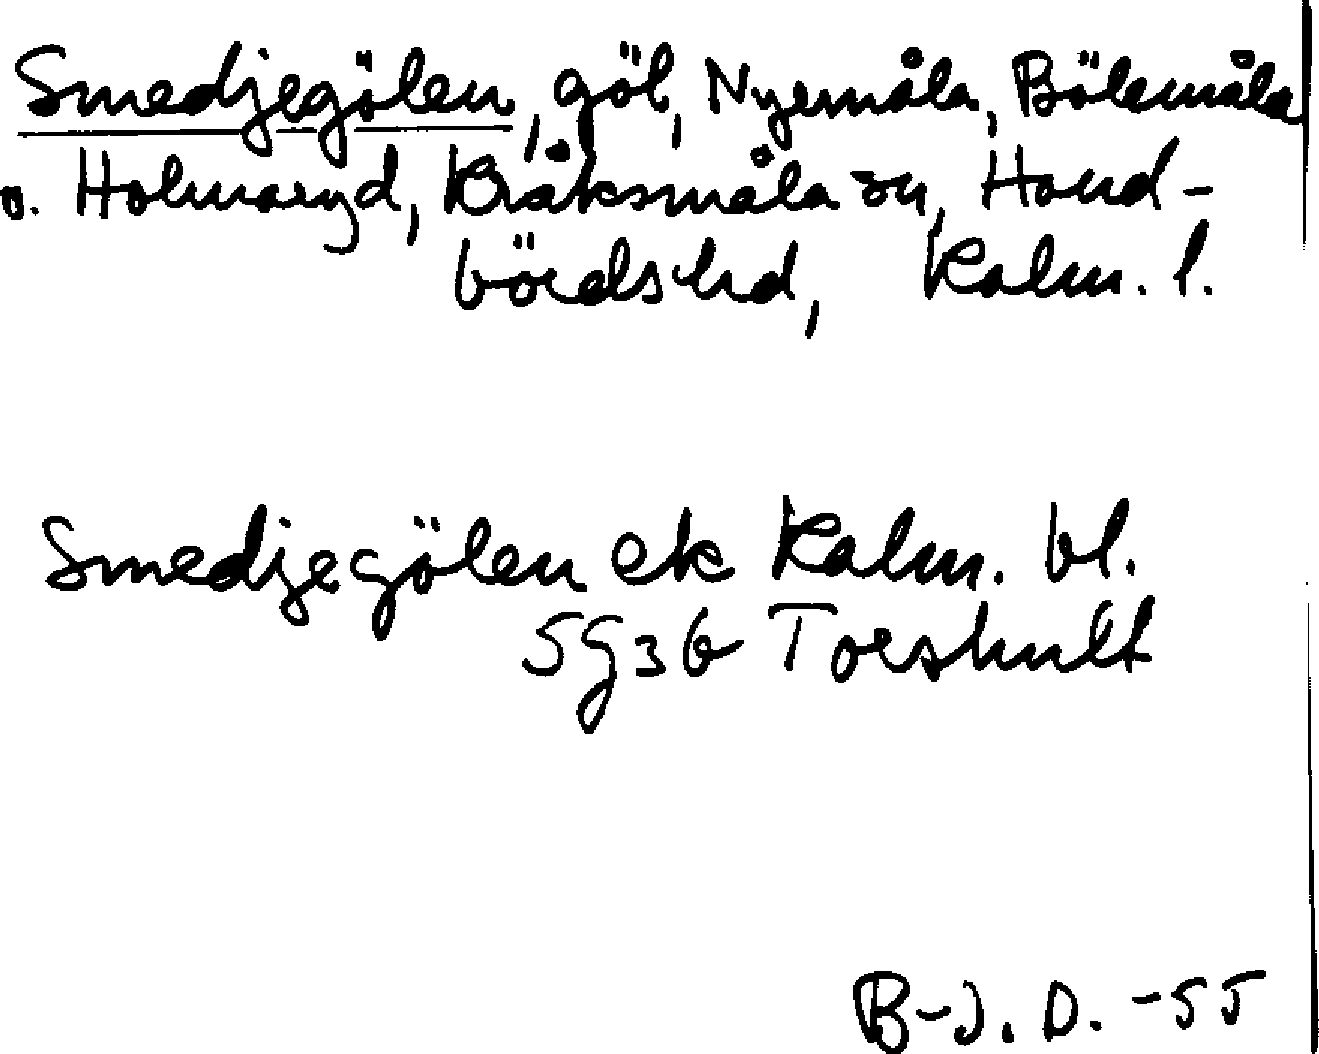 Smedjegölen, göl, Nyemåla, Bölemåla
o. Holmaryd, Bäckebo sn, Hand-
bördshd, Kalm. l.
Smedjegölen ek Kalm. bl.
5g3b Toeshult
B-J. D. -55